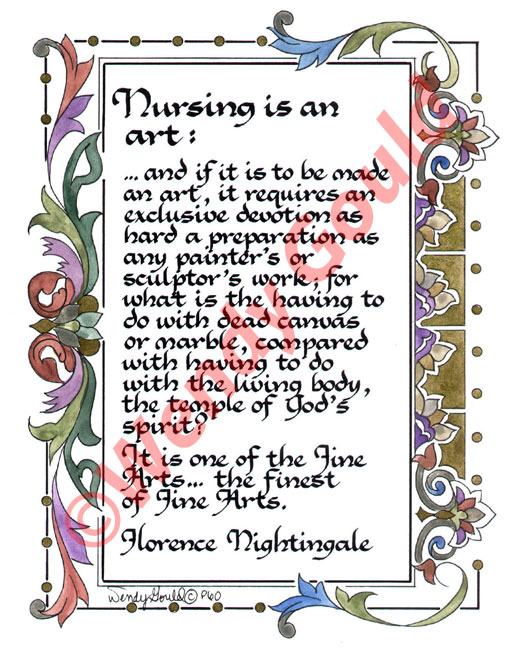 Nursing is an
art:
... and if it is to be made
an art, it requires an
exclusive devotion as
hard a preparation as
any painter's or
sculptor's work; for
what is the having to
do with dead canvas
or marble, compared
with having to do
with the living body,
the temple of God's
spirit?
It is one of the Fine
Arts... the finest
of Fine Arts.
Florence Nightingale
Wendy Gould © P60
©Wendy Gould